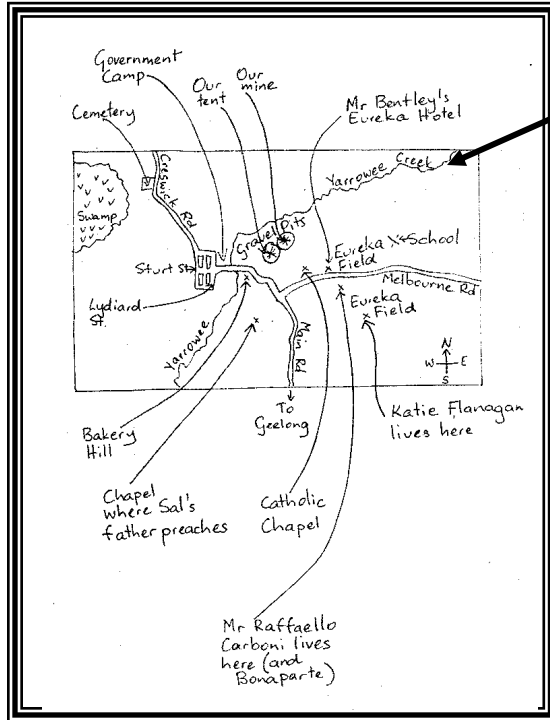 Government
Camp
Our
tent
Our
mine
Mr Bentley's
Eureka Hotel
Cemetery
Creswick Rd
Yarrowee Creek
Swamp
Gravel Pits
Eureka
Field
School
Sturt St
Melbourne Rd
Lydiard
St.
Eureka
Field
Yarrowee
Main Rd
N
W
E
S
To
Geelong
Katie Flanagan
lives here
Bakery
Hill
Chapel
where Sal's
father preaches
Catholic
Chapel
Mr Raffaello
Carboni lives
here (and
Bonaparte)